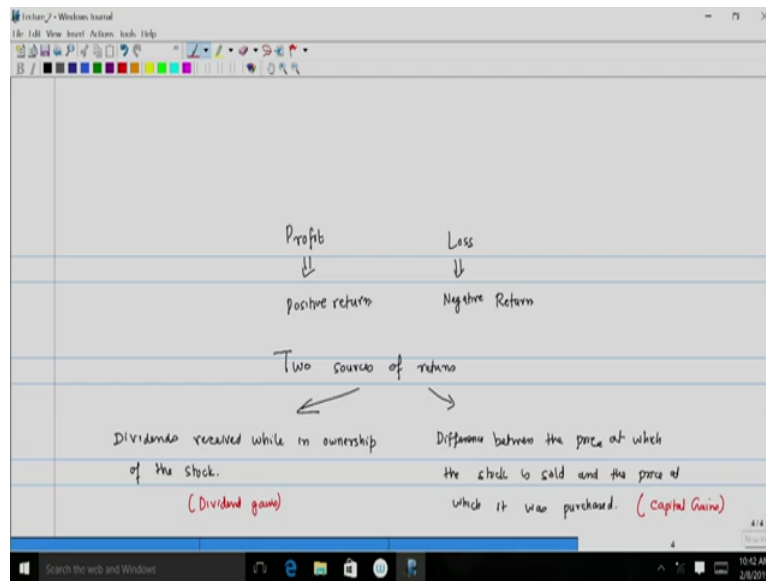 Lecture_2 - Windows Journal
File Edit View Insert Actions Tools Help
B I
Profit Loss
Positive return Negative Return
Two sources of returns
Dividends received while in ownership
of the stock.
(Dividend gains)
Difference between the price at which
the stock is sold and the price at
which it was purchased. (Capital Gains)
4/4
4
Search the web and Windows
10:42 AM